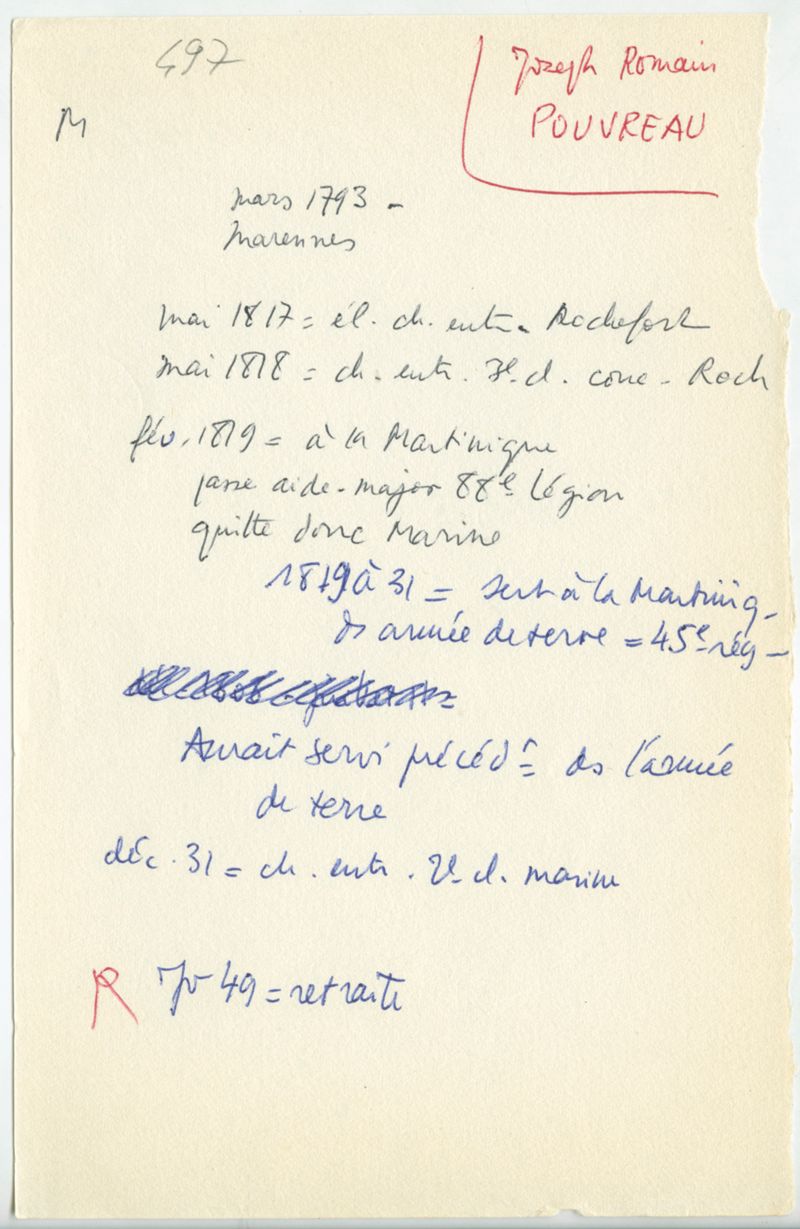 497
Joseph Romain
POUVREAU
M
mars 1793 -
Marennes
mai 1817 = él. ch. entr. Rochefort
mai 1818 = ch. entr. cl. conc - Roch
fév. 1819 = à la Martinique
passe aide-major 88e Légion
quitte donc Marine
1819 à 31 = sert à la Martiniq-
ds armée de terre = 45e rég -
Aurait servi précédt = ds l'armée
de terre
déc. 31 = ch. entr. 2e cl. marine
R Jr 49 = retraite